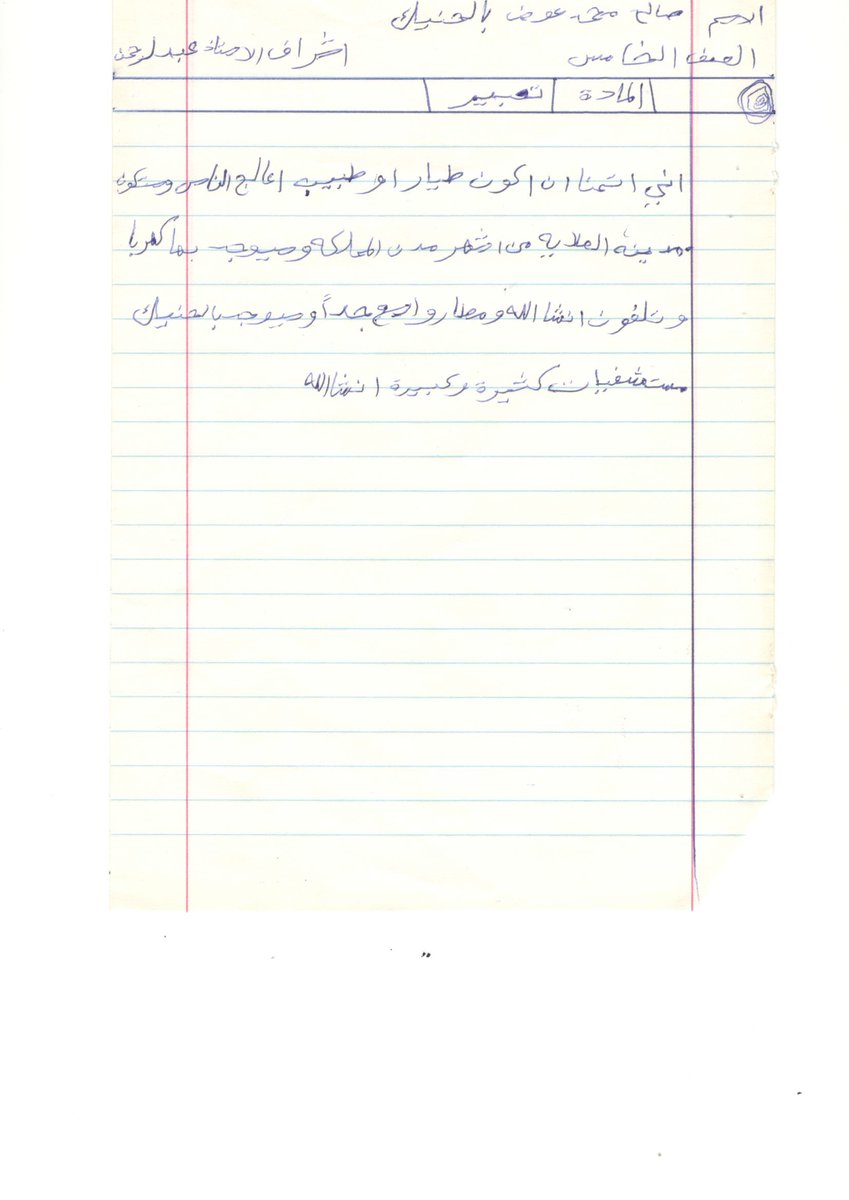 الاسم صالح محمد عوض بالحنيك
الصف الخامس اشراف الاستاذ عبدلرحمن
المادة تعبير
انني اتمنا ان اكون طيار او طبيب اعالج الناس وستكون
مدينة العلاية من اشهر مدن المملكة وسيوجد بها كهربا
وتلفون انشاالله ومطار واسع جداً وسيوجد بالحنيك
مستشفيات كثيرة وكبيرة انشاالله